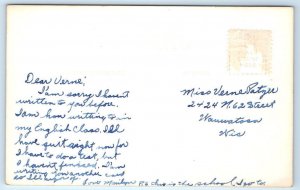 Dear Verne;
I am sorry I haven't
written to you before.
I am now writting to in
my English Class. I'll
have quit right now for
I have to do a test, but
I haven't finised. I'm
writing you another card
so
Love
P.S. this is the school I go to
Miss Verne Patzer
2424 N. 62 Street
Wauwatosa
Wis